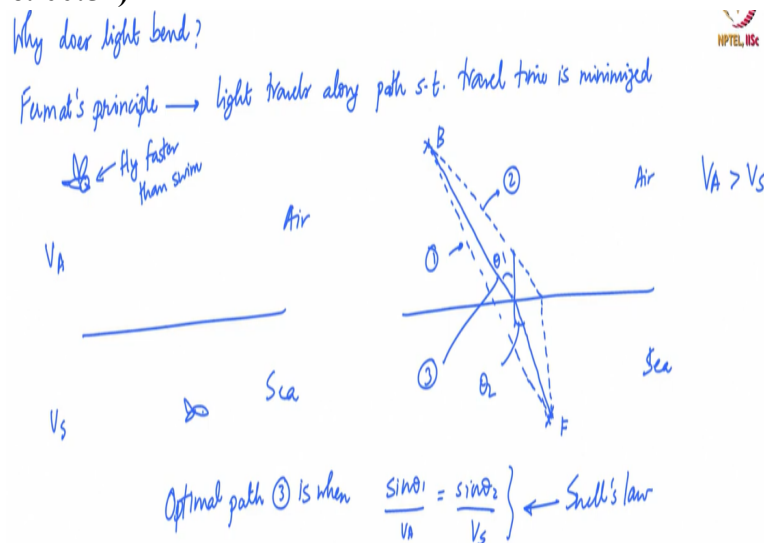 Why does light bend?
NPTEL, IISc
Fermat's principle → light travels along path s.t. travel time is minimized
← fly faster
than swim
B
②
Air
VA > VS
Air
①
θ1
VA
③
θ2
Sea
Sea
VS
F
Optimal path ③ is when sinθ1/VA = sinθ2/VS } ← Snell's law